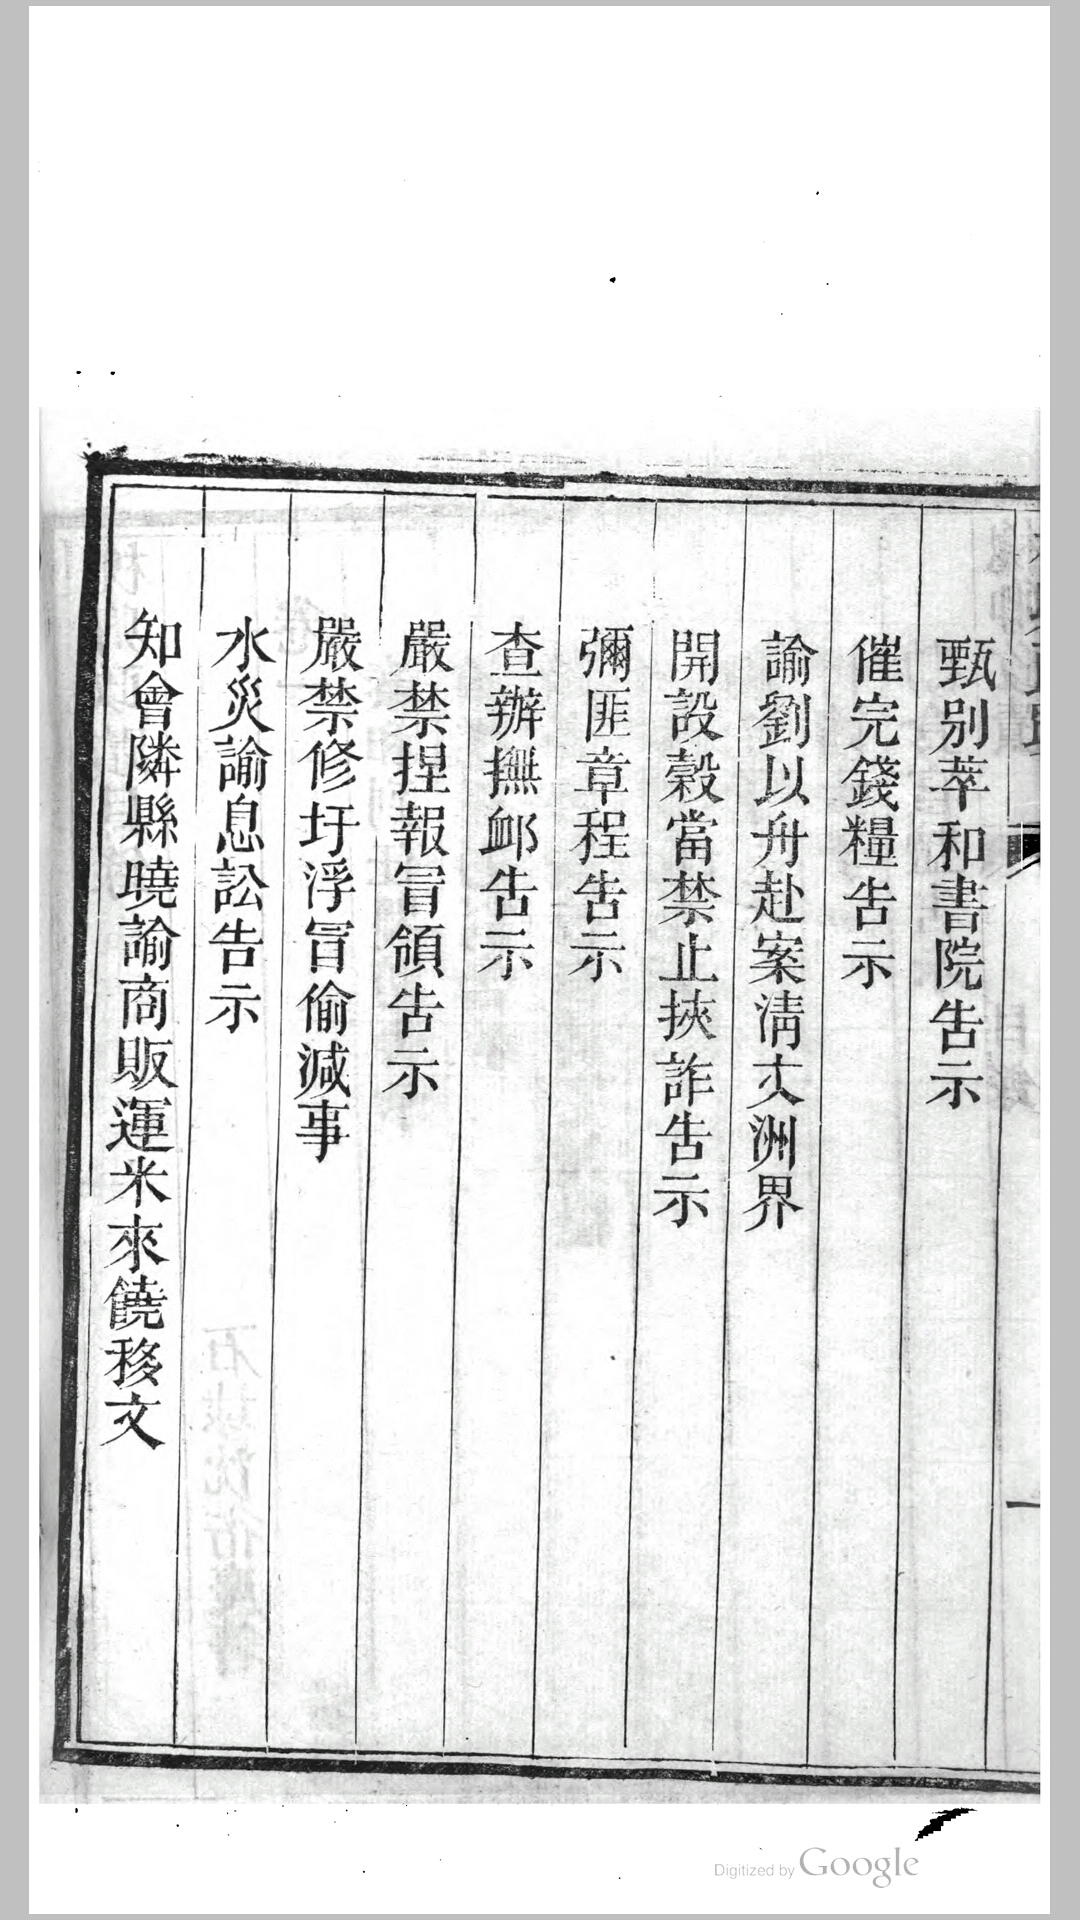 甄別萃和書院告示
催完錢糧告示
諭劉以舟赴案清丈洲界
開設穀當禁止挾詐告示
彌匪章程告示
查辦撫卹告示
嚴禁捏報冒領告示
嚴禁修圩浮冒偷減事
水災諭息訟告示
知會隣縣曉諭商販運米來饒移文
一
Digitized by Google